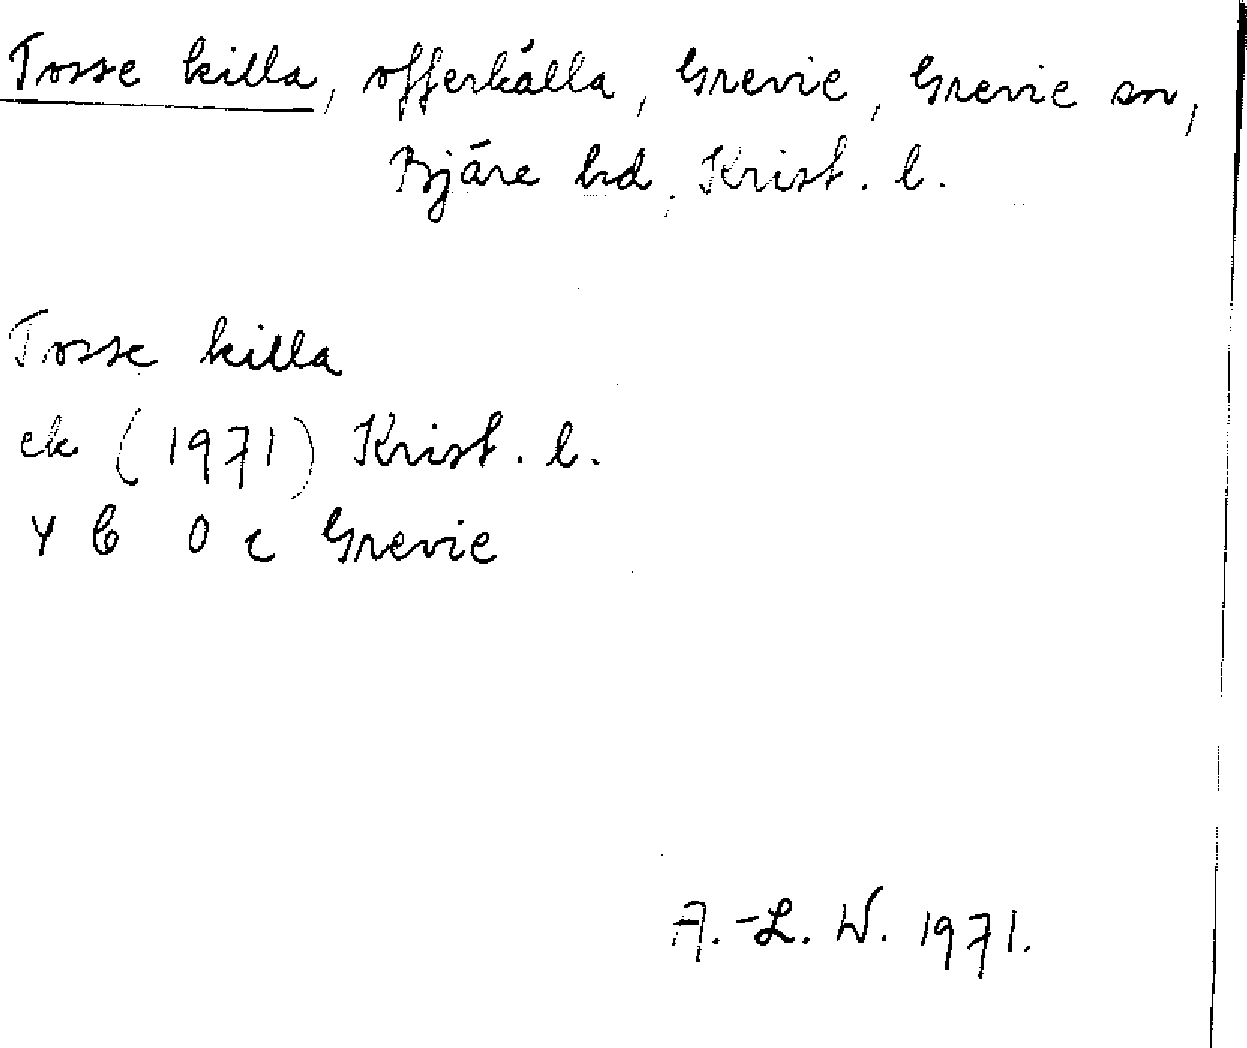 Tosse killa, offerkälla, Grevie, Grevie sn,
Bjäre hd, Krist. l.
Tosse killa
ek (1971) Krist. l.
4 C 0 c Grevie
A.-L. W. 1971.